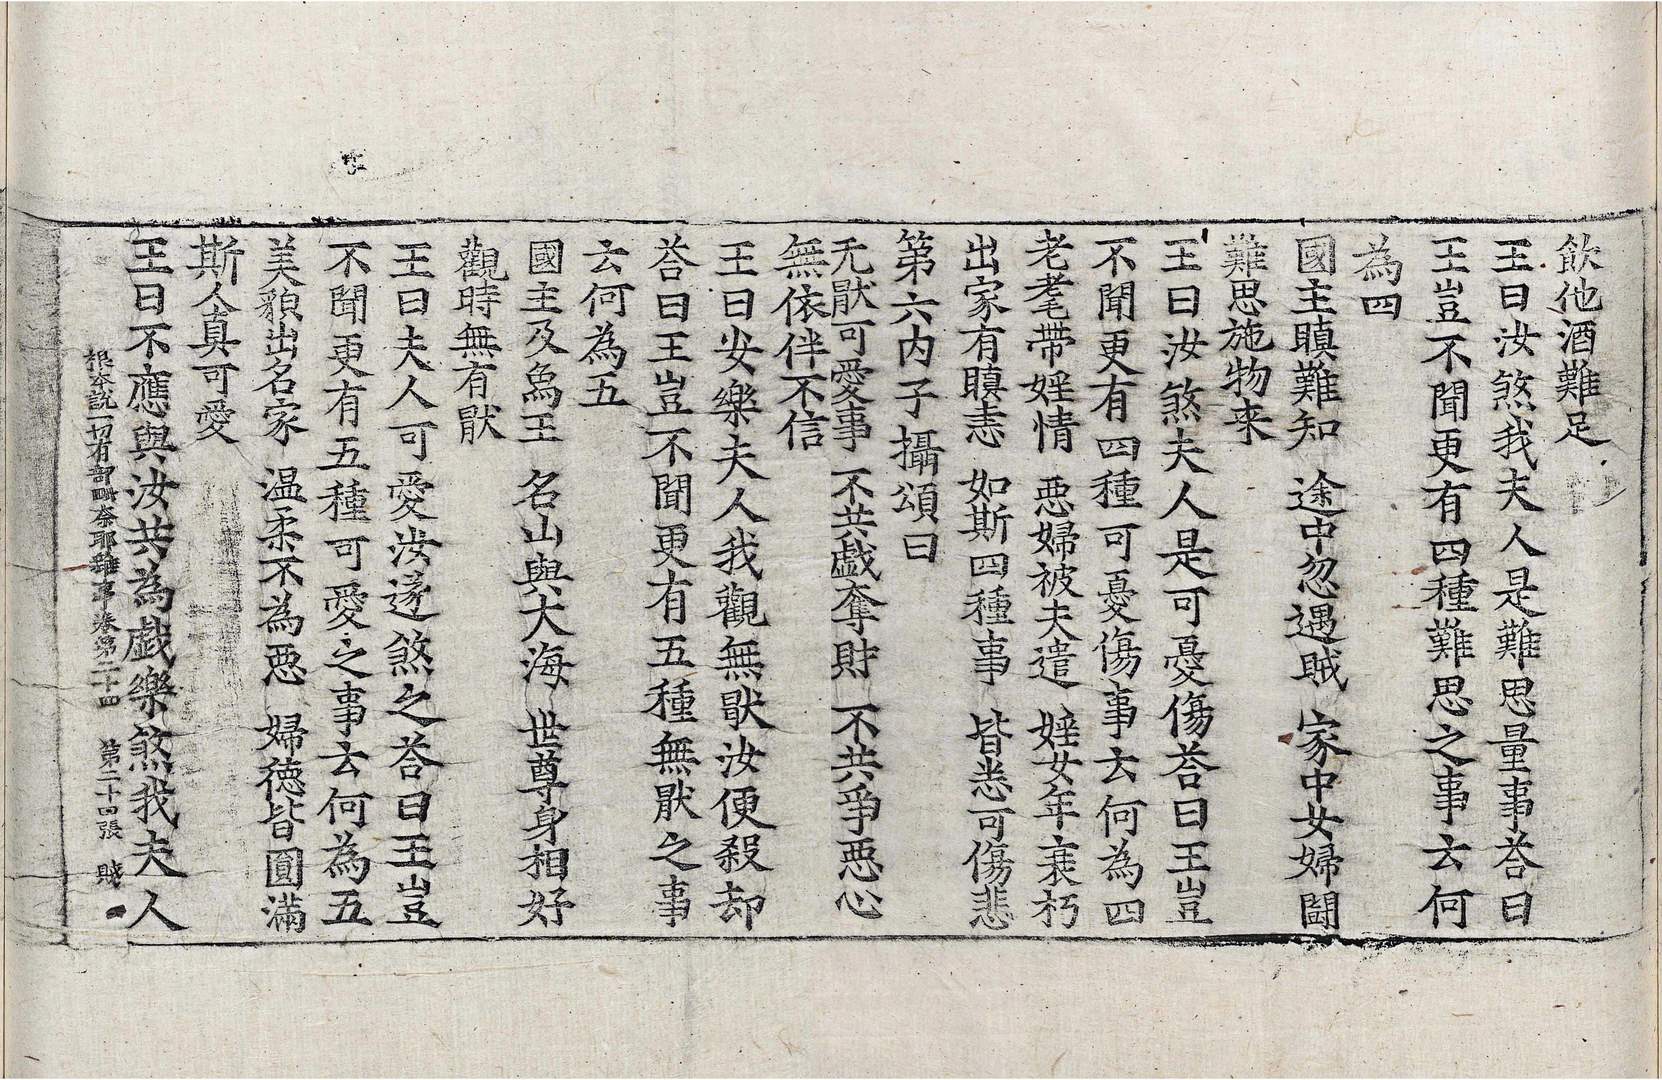 飲他酒難足
王曰汝煞我夫人是難思量事荅曰
王豈不聞更有四種難思之事云何
為四
國主瞋難知 途中忽遇賊 家中女婦鬪
難思施物来
王曰汝煞夫人是可憂傷荅曰王豈
不聞更有四種可憂傷事云何為四
老耄帶婬情 惡婦被夫遣 婬女年衰朽
出家有瞋恚 如斯四種事 皆悉可傷悲
第六内子攝頌曰
无猒可愛事 不共戯奪財 不共爭惡心
無依伴不信
王曰安樂夫人我觀無猒汝便殺却
荅曰王豈不聞更有五種無猒之事
云何為五
國主及象王 名山與大海 世尊身相好
觀時無有猒
王曰夫人可愛汝遂煞之荅曰王豈
不聞更有五種可愛之事云何為五
美貌出名家 温柔不為惡 婦德皆圓滿
斯人真可愛
王曰不應與汝共為戯樂煞我夫人
根夲說一切有部毗奈耶雜事卷第二十四 第二十四張 賤